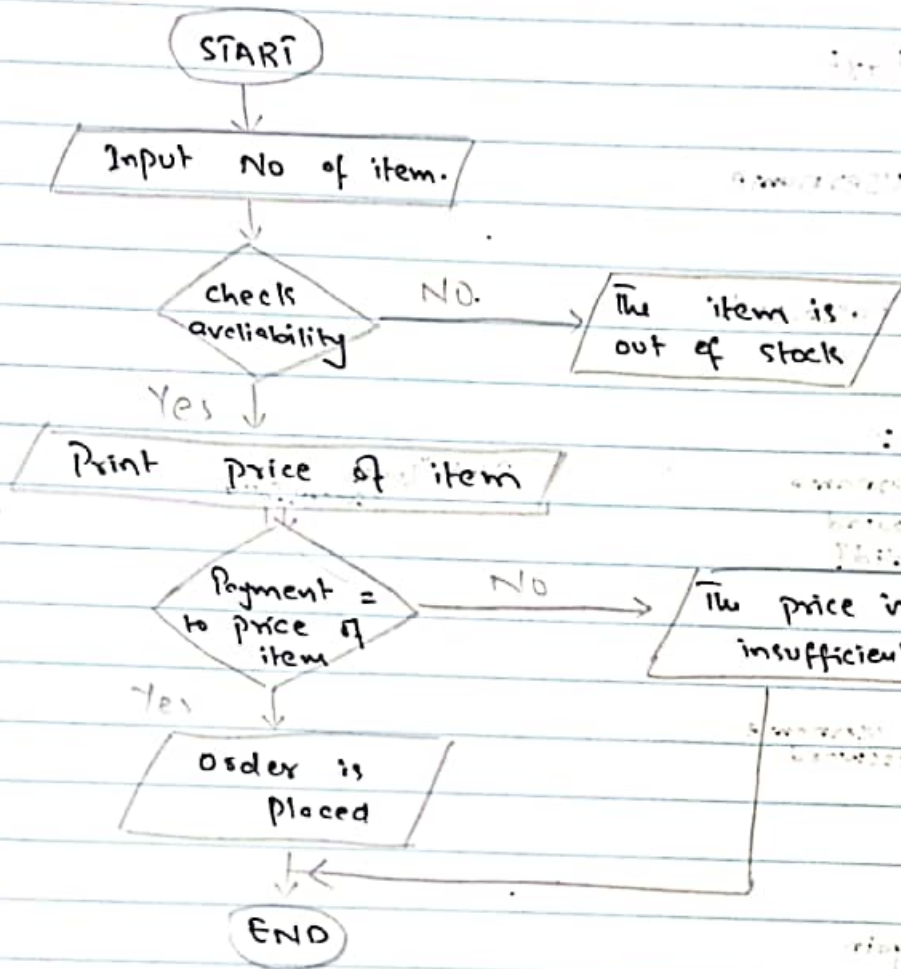 START
Input No of item.
Check
aveliability
NO.
The item is.
out of stock
Yes
Print price of item
Payment =
to price of
item
No
The price is
insufficient
Yes
Order is
Placed
END